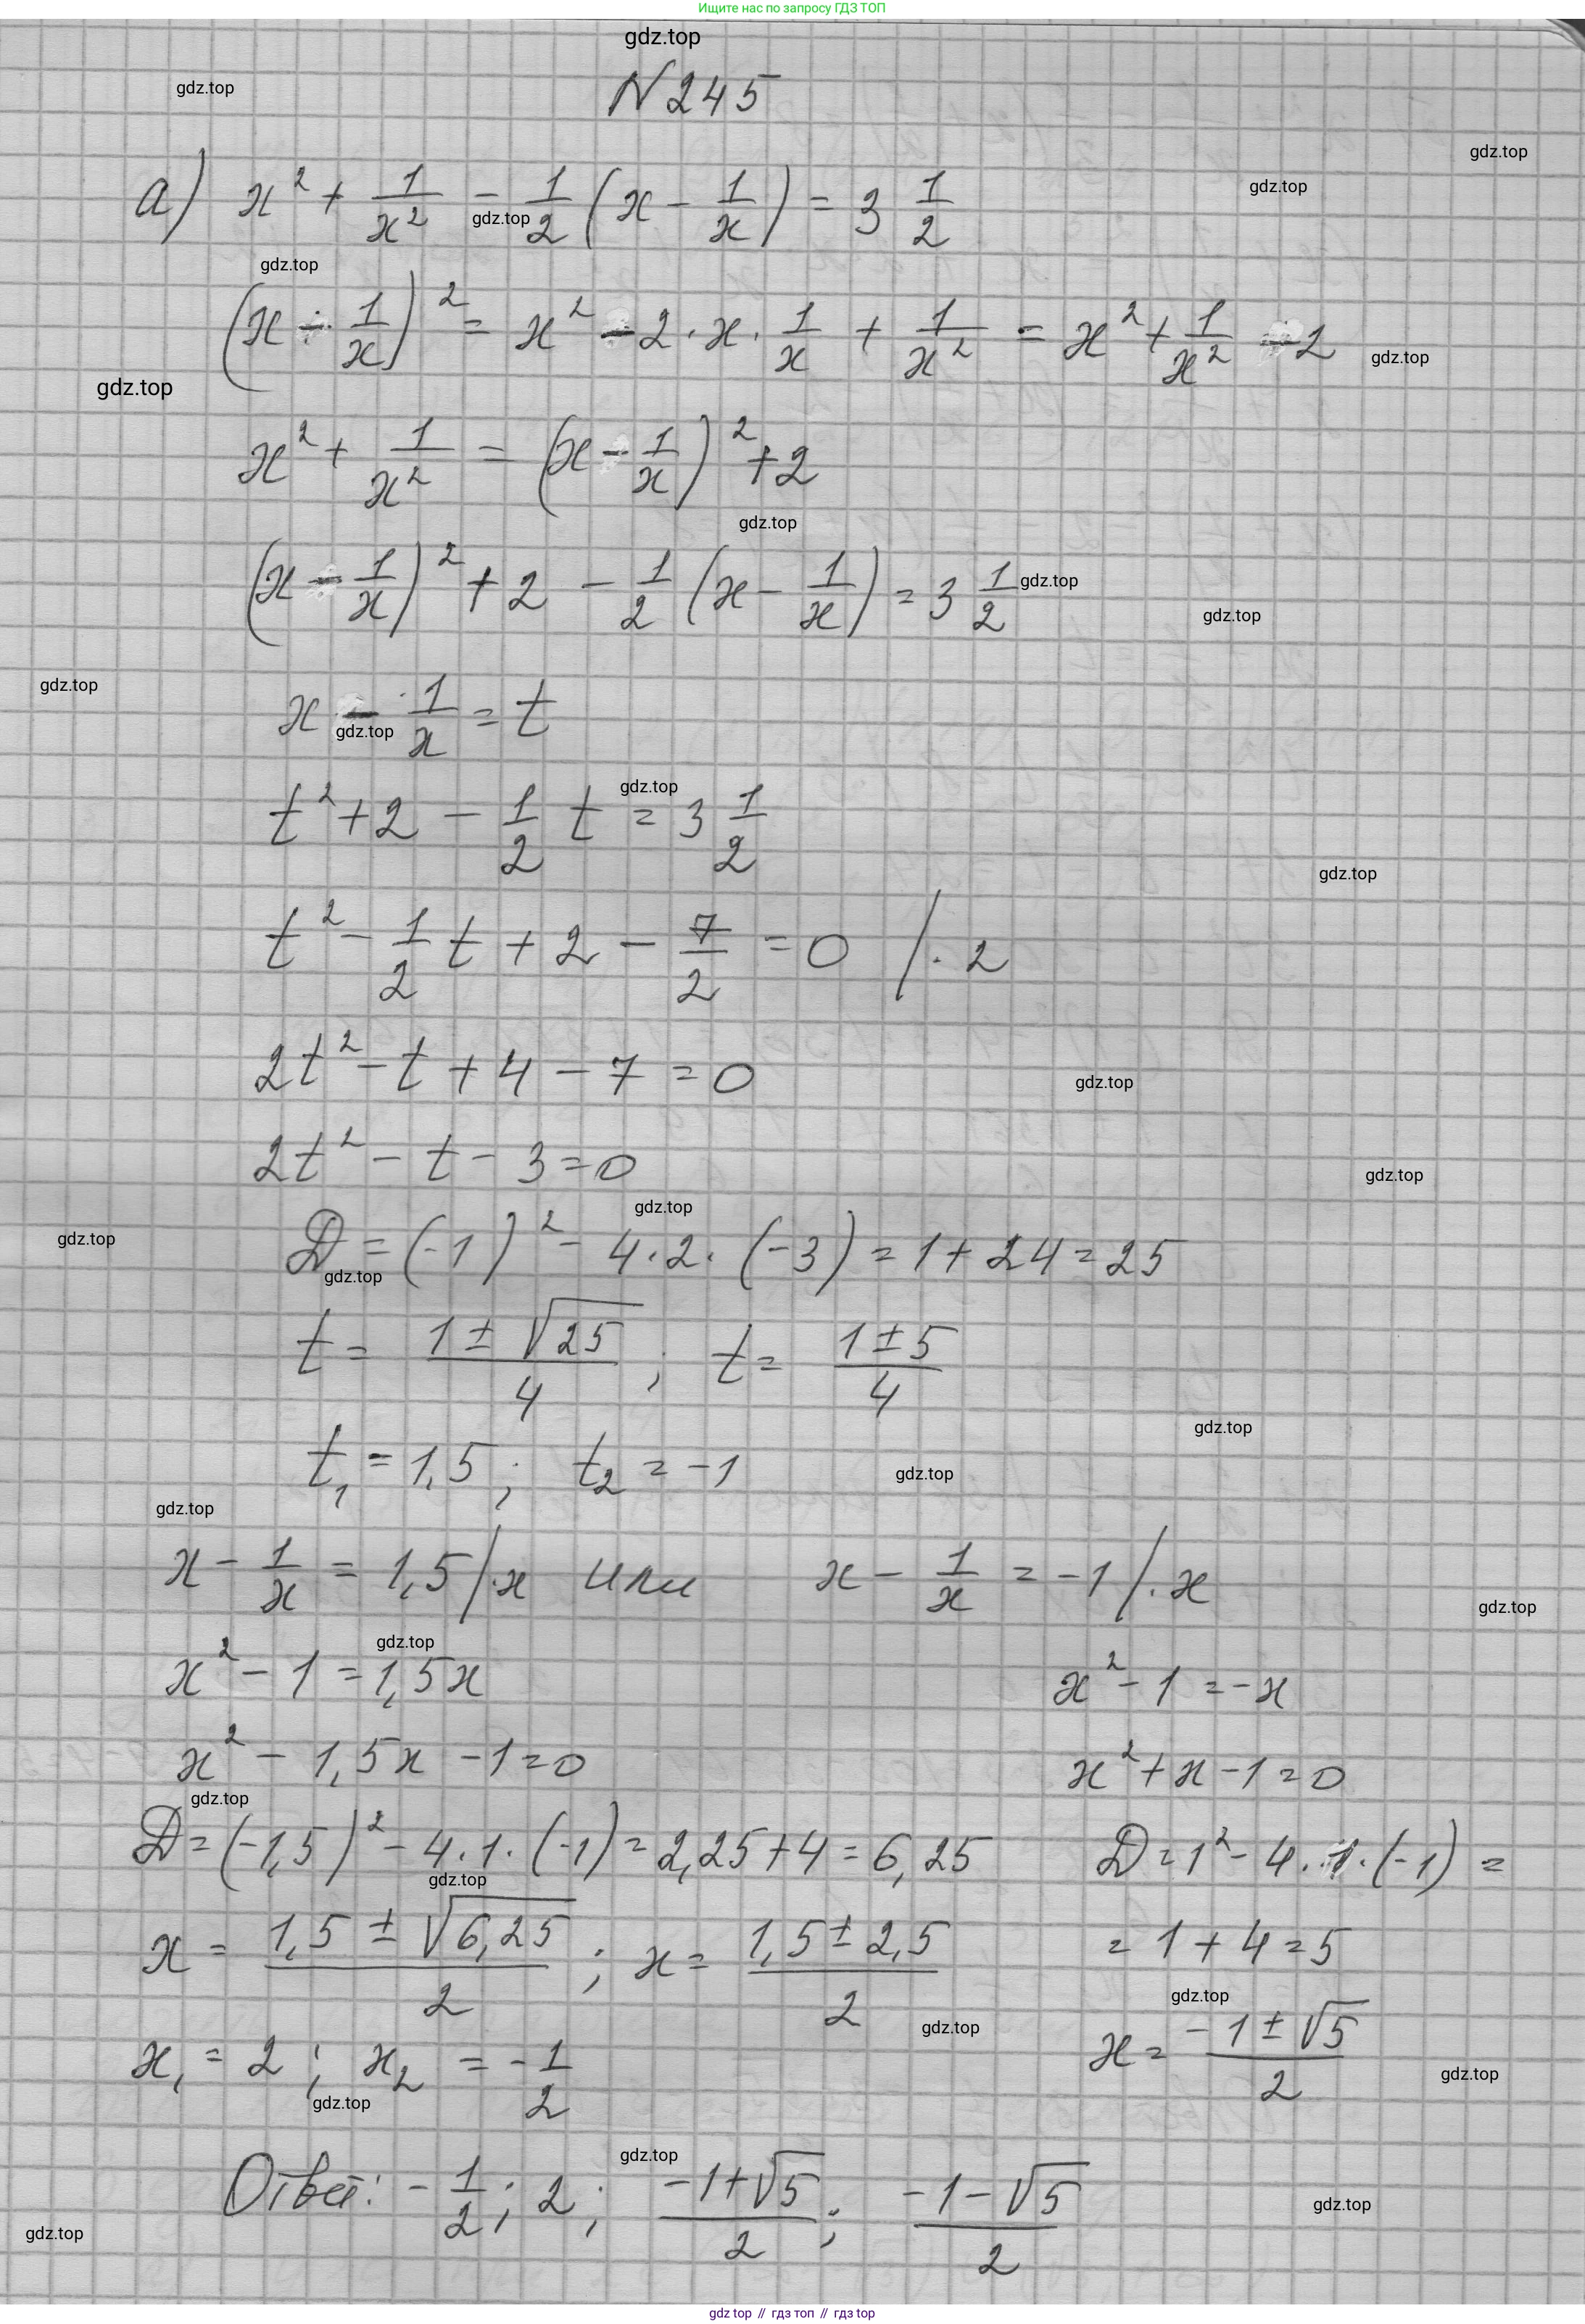 Ищите нас по запросу ГДЗ ТОП
gdz.top
N 245
gdz.top
gdz.top
gdz.top
а) x² + 1/x² - 1/2 (x - 1/x) = 3 1/2
gdz.top
gdz.top
(x - 1/x)² = x² - 2 · x · 1/x + 1/x² = x² + 1/x² - 2
gdz.top
gdz.top
x² + 1/x² = (x - 1/x)² + 2
gdz.top
(x - 1/x)² + 2 - 1/2 (x - 1/x) = 3 1/2
gdz.top
gdz.top
gdz.top
x - 1/x = t
gdz.top
gdz.top
t² + 2 - 1/2 t = 3 1/2
gdz.top
t² - 1/2 t + 2 - 7/2 = 0 / · 2
2t² - t + 4 - 7 = 0
gdz.top
2t² - t - 3 = 0
gdz.top
gdz.top
gdz.top
D = (-1)² - 4 · 2 · (-3) = 1 + 24 = 25
gdz.top
t = (1 ± √25)/4 ; t = (1 ± 5)/4
gdz.top
t₁ = 1,5 ; t₂ = -1
gdz.top
gdz.top
x - 1/x = 1,5 / · x или x - 1/x = -1 / · x
gdz.top
gdz.top
x² - 1 = 1,5x x² - 1 = -x
x² - 1,5x - 1 = 0 x² + x - 1 = 0
gdz.top
D = (-1,5)² - 4 · 1 · (-1) = 2,25 + 4 = 6,25 D = 1² - 4 · 1 · (-1) =
gdz.top
x = (1,5 ± √6,25)/2 ; x = (1,5 ± 2,5)/2 = 1 + 4 = 5
gdz.top
gdz.top
x₁ = 2 ; x₂ = -1/2 x = (-1 ± √5)/2
gdz.top
gdz.top
gdz.top
Ответ: -1/2 ; 2 ; (-1+√5)/2 ; (-1-√5)/2
gdz.top
gdz.top
gdz top // гдз топ // гдз top